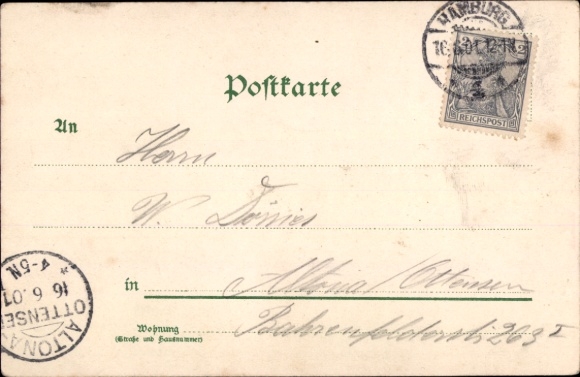 HAMBURG
16.6.01.12-1N.
1
2
REICHSPOST
Postkarte
An
Herrn
W. Dörries
in Altona/Ottensen
Wohnung
(Straße und Hausnummer)
Bahrenfelderstr. 263 I
ALTONA
OTTENSEN
16.6.01
4-5N.